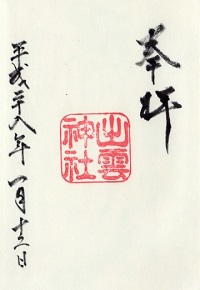 奉拝
出雲
神社
平成二十八年一月十三日